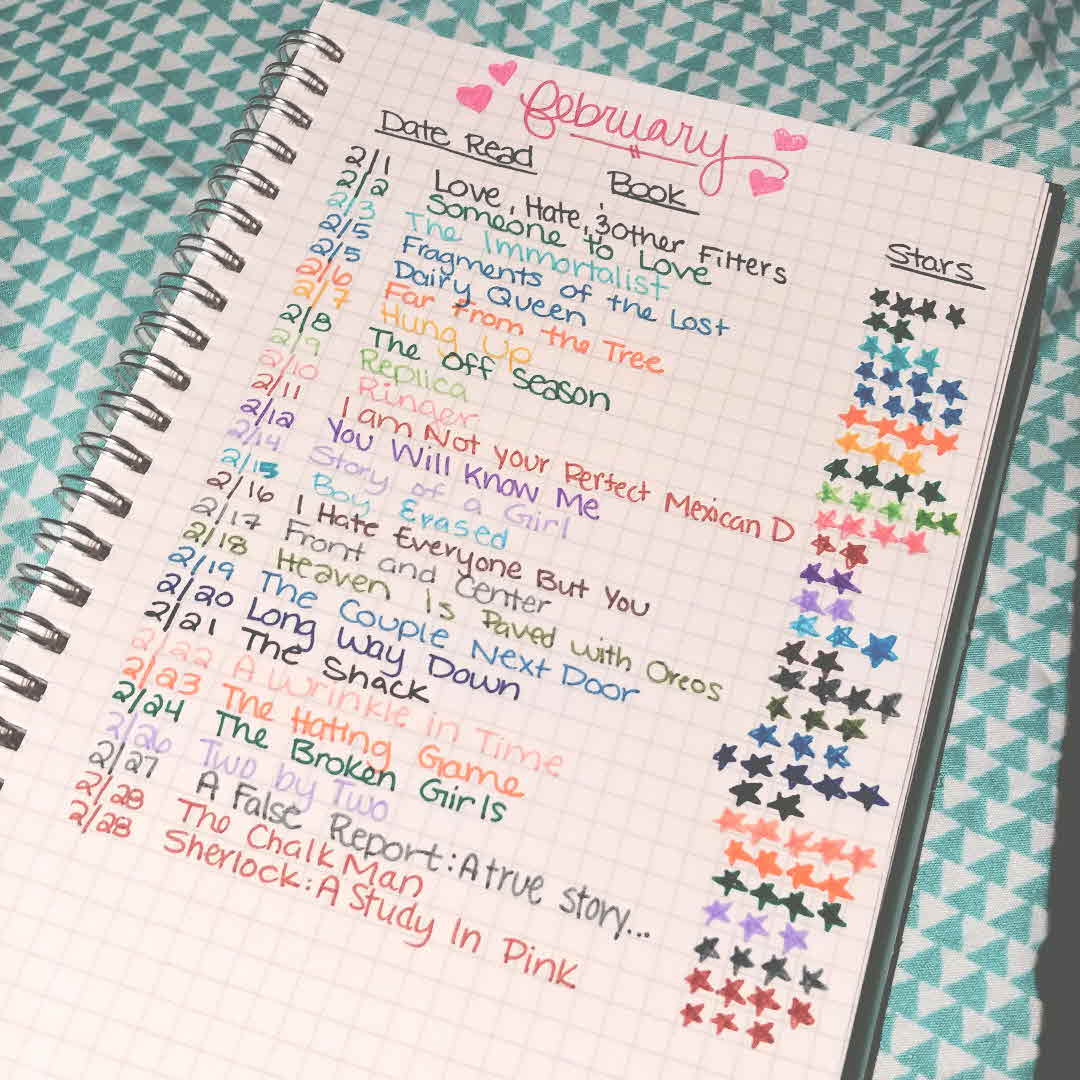 February
Date Read Book Stars
2/1 Love, Hate, & other Filters
2/2 Someone to Love
2/3 The Immortalist
2/5 Fragments of the Lost
2/5 Dairy Queen
2/6 Far From the Tree
2/7 Hung Up
2/8 The Off Season
2/9 Replica
2/10 Ringer
2/11 I am Not your Perfect Mexican D
2/12 You Will Know Me
2/14 Story of a Girl
2/15 Boy Erased
2/16 I Hate Everyone But You
2/17 Front and Center
2/18 Heaven Is Paved with Oreos
2/19 The Couple Next Door
2/20 Long Way Down
2/21 The Shack
2/22 A Wrinkle in Time
2/23 The Hating Game
2/24 The Broken Girls
2/26 Two by Two
2/27 A False Report: A true story...
2/28 The Chalk Man
2/28 Sherlock: A Study In Pink